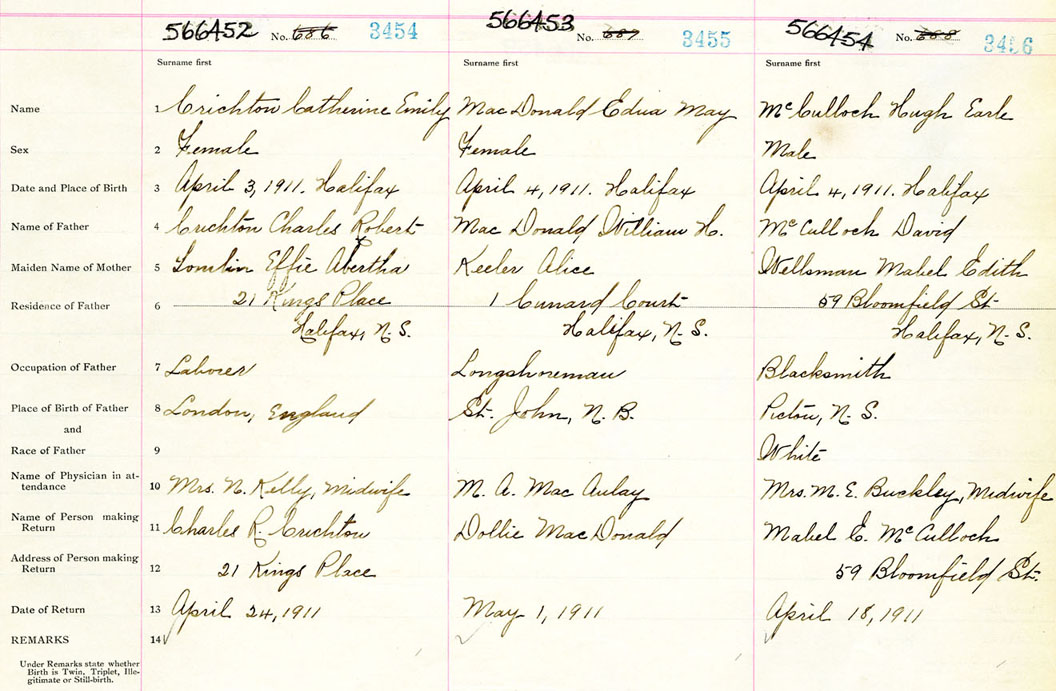 566452 No. 686 3454 566453 No. 687 3455 566454 No. 688
Surname first Surname first Surname first
Name 1 Crichton Catherine Emily Mac Donald Edna May McCulloch Hugh Earle
Sex 2 Female Female Male
Date and Place of Birth 3 April 3, 1911. Halifax April 4, 1911. Halifax April 4, 1911. Halifax
Name of Father 4 Crichton Charles Robert Mac Donald William H. McCulloch David
Maiden Name of Mother 5 Effie Abertha Keeler Alice Wellsman Mabel Edith
Residence of Father 6 21 Kings Place 1 Cunard Court 59 Bloomfield St
Halifax, N.S. Halifax, N.S. Halifax, N.S.
Occupation of Father 7 Laborer Longshoreman Blacksmith
Place of Birth of Father 8 London, England St. John, N.B. Pictou, N.S.
and
Race of Father 9 White
Name of Physician in at-
tendance 10 Mrs. N. Kelly, Midwife M. A. Mac Aulay Mrs. M. E. Buckley, Midwife
Name of Person making
Return 11 Charles R. Crichton Dollie MacDonald Mabel E. McCulloch
Address of Person making
Return 12 21 Kings Place 59 Bloomfield St.
Date of Return 13 April 24, 1911 May 1, 1911 April 18, 1911
REMARKS 14
Under Remarks state whether
Birth is Twin, Triplet, Ille-
gitimate or Still-birth.